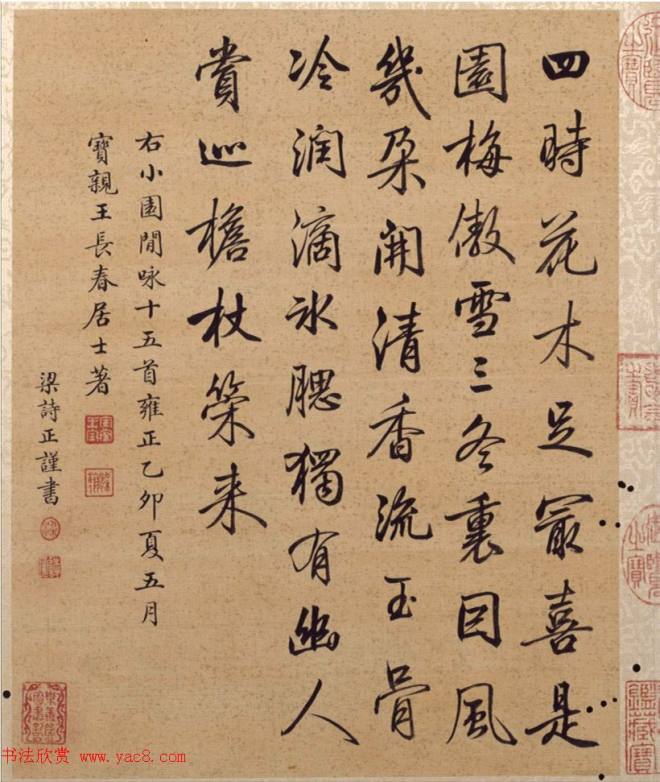 四時花木足冣喜是
園梅傲雪三冬裏因風
幾朵開清香流玉骨
冷潤滴冰腮獨有幽人
賞巡檐杖策来
右小園閒咏十五首雍正乙卯夏五月
寶親王長春居士著
梁詩正謹書
书法欣赏 www.yac8.com